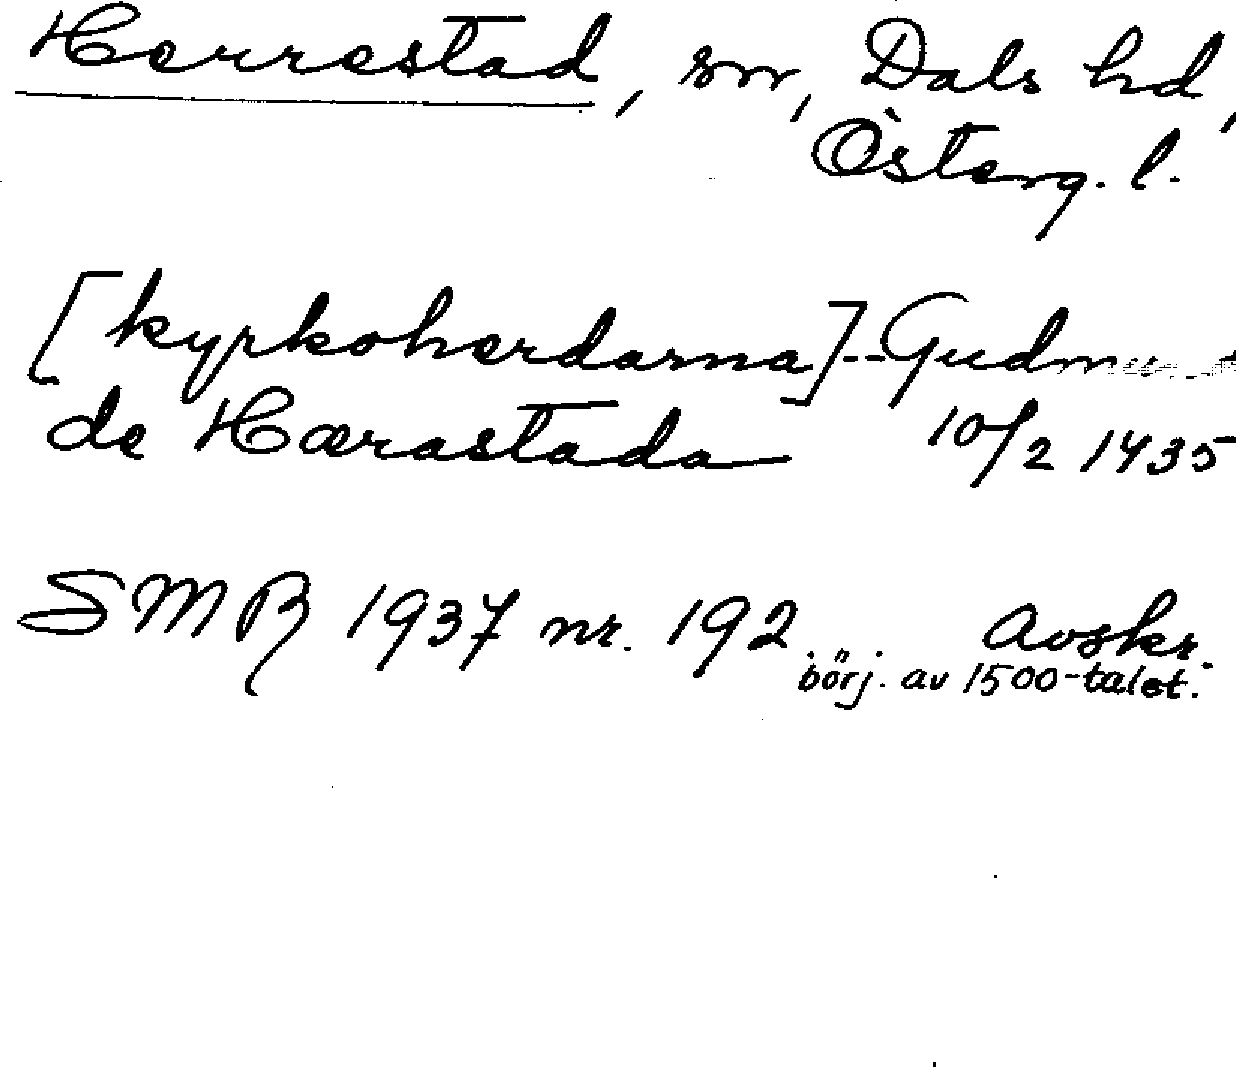 Herrestad, sn, Dals hd,
Österg. l.
[kyrkoherdarna]--
de Hærastada 10/2 1435
SMR 1937 nr. 192... Avskr.
börj. av 1500-talet.